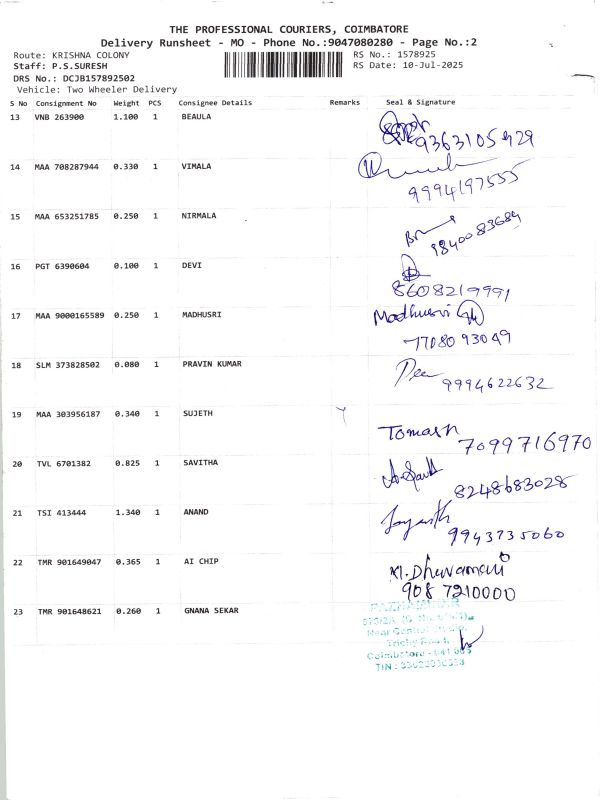 THE PROFESSIONAL COURIERS, COIMBATORE
Delivery Runsheet - MO - Phone No.:9047080280 - Page No.:2
Route: KRISHNA COLONY RS No.: 1578925
Staff: P.S.SURESH RS Date: 10-Jul-2025
DRS No.: DCJB157892502
Vehicle: Two Wheeler Delivery
S No Consignment No Weight PCS Consignee Details Remarks Seal & Signature
13 VNB 263900 1.100 1 BEAULA
9363105929
14 MAA 708287944 0.330 1 VIMALA
9994197555
15 MAA 653251785 0.250 1 NIRMALA
9840083689
16 PGT 6390604 0.100 1 DEVI
8608219991
17 MAA 9000165589 0.250 1 MADHUSRI Madhusri
7708093049
18 SLM 373828502 0.080 1 PRAVIN KUMAR
9994622632
19 MAA 303956187 0.340 1 SUJETH
Tomash 7099716970
20 TVL 6701382 0.825 1 SAVITHA
8248683028
21 TSI 413444 1.340 1 ANAND Jayanth
9943735060
22 TMR 901649047 0.365 1 AI CHIP M.Dhuvamani
908 7210000
23 TMR 901648621 0.260 1 GNANA SEKAR
Near Central Studio,
Trichy Road,
Coimbatore - 641 005